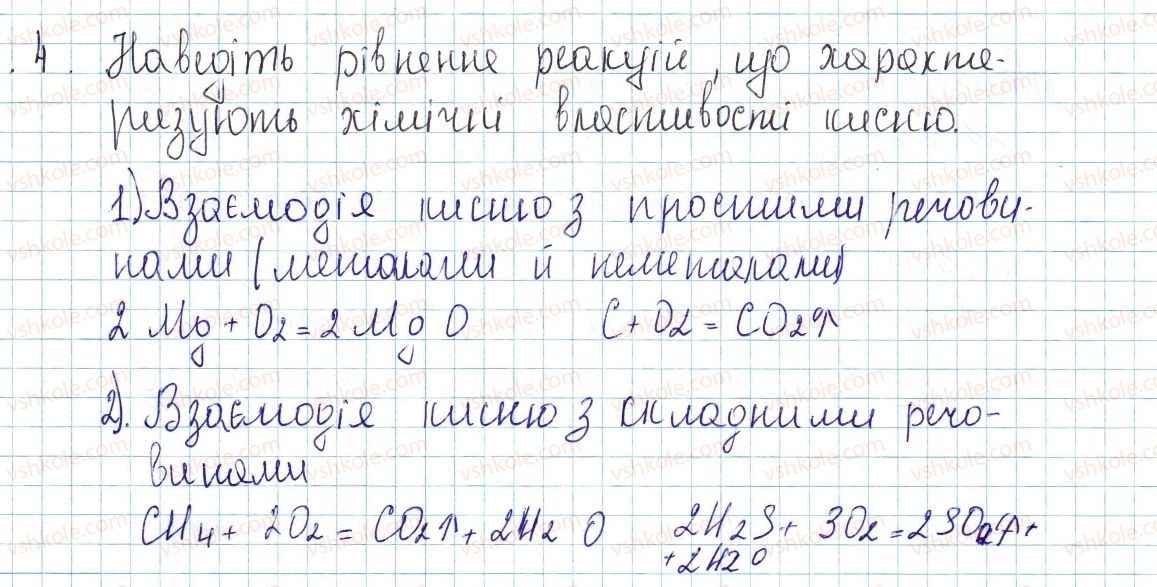 4. Наведіть рівнення реакцій, що характе-
ризують хімічні властивості кисню.
1) Взаємодія кисню з простими речови-
нами (металами й неметалами)
2 Mg + O2 = 2 MgO C + O2 = CO2↑
2). Взаємодія кисню з складними речо-
винами
CH4 + 2O2 = CO2↑ + 2H2O 2H2S + 3O2 = 2SO2↑ +
+ 2H2O